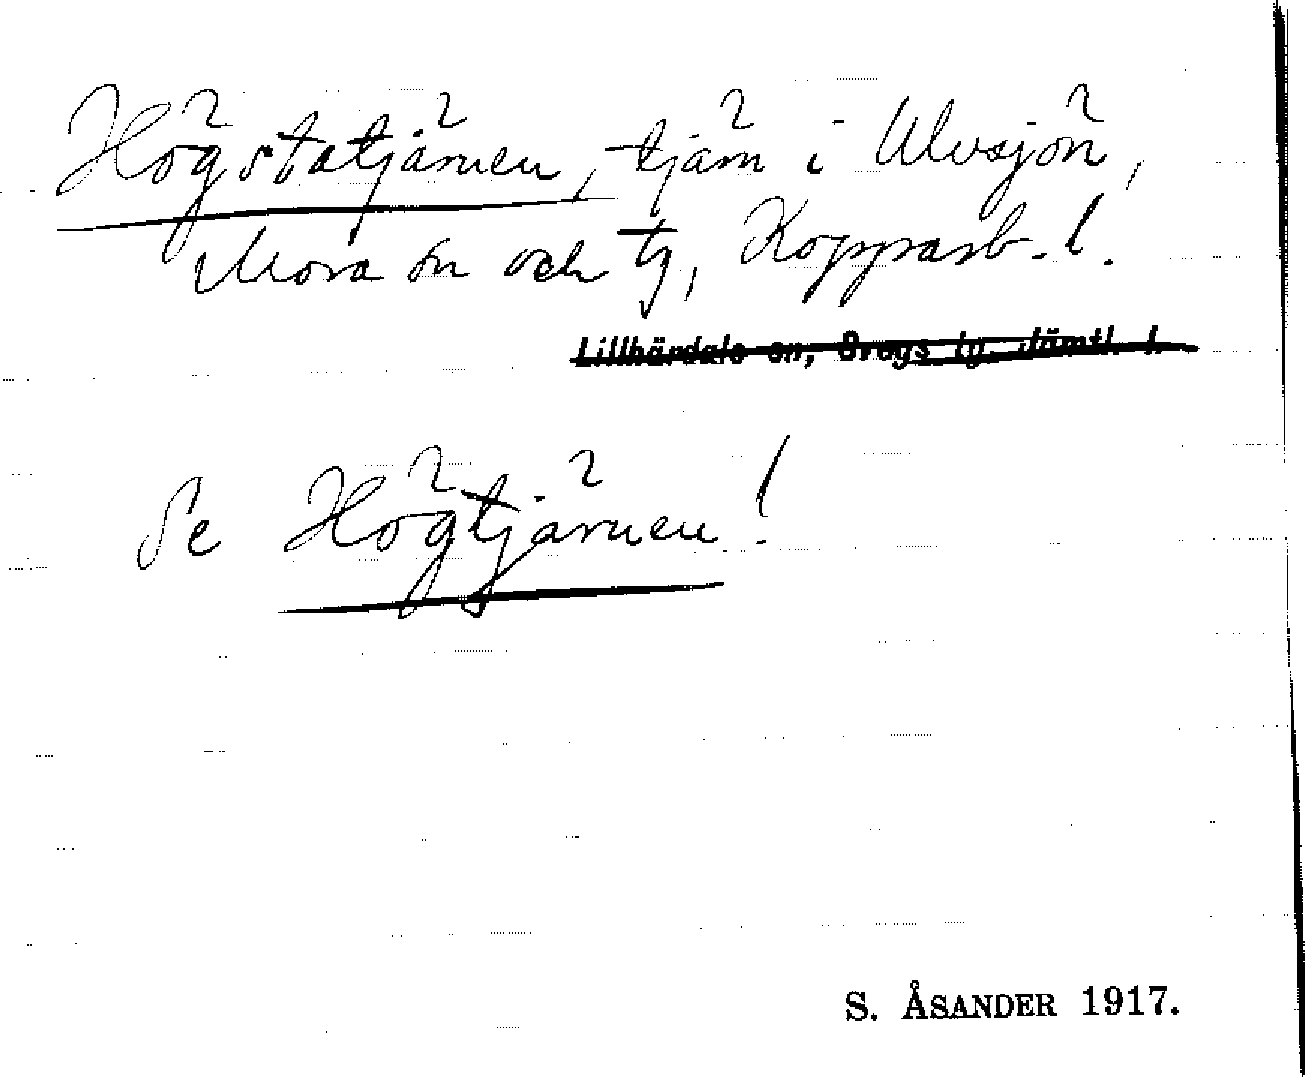 Högstatjärnen, tjärn i Ulvsjön,
Mora sn och tg, Kopparb. l.
Lillhärdals sn, Svegs tg, Jämtl. l.
Se Högtjärnen!
S. ÅSANDER 1917.